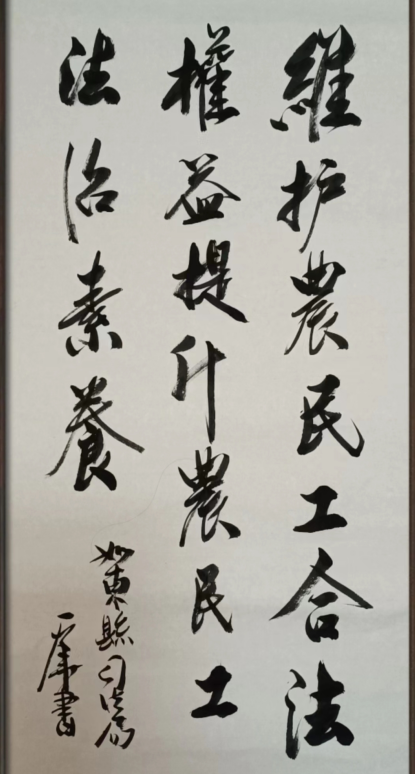 維护農民工合法
權益提什農民工
法治素養
如東縣司法局
一庸書